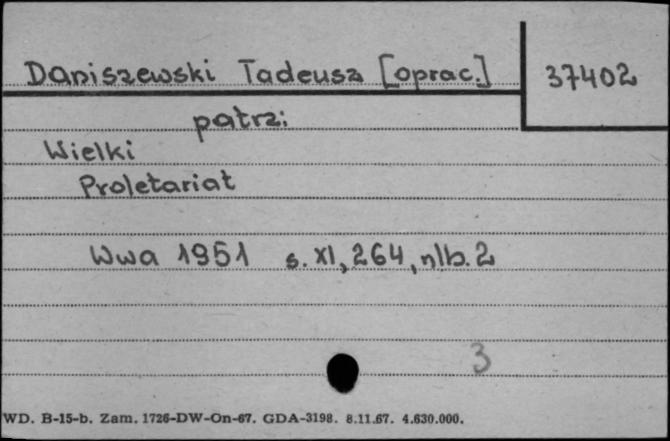 Daniszewski Tadeusz [oprac.] 37402
patrz:
Wielki
Proletariat
Wwa 1951 s. XI, 264, nlb. 2
3
WD. B-15-b. Zam. 1726-DW-On-67. GDA-3198. 8.11.67. 4.630.000.